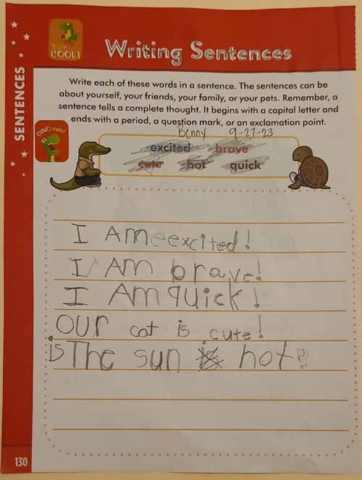 COOL!
Writing Sentences
SENTENCES
Write each of these words in a sentence. The sentences can be
about yourself, your friends, your family, or your pets. Remember, a
sentence tells a complete thought. It begins with a capital letter and
ends with a period, a question mark, or an exclamation point.
Benny 9-27-23
excited brave
cute hot quick
I Am excited!
I Am brave!
I Am quick!
OUR cat is cute!
is The sun hot?
130